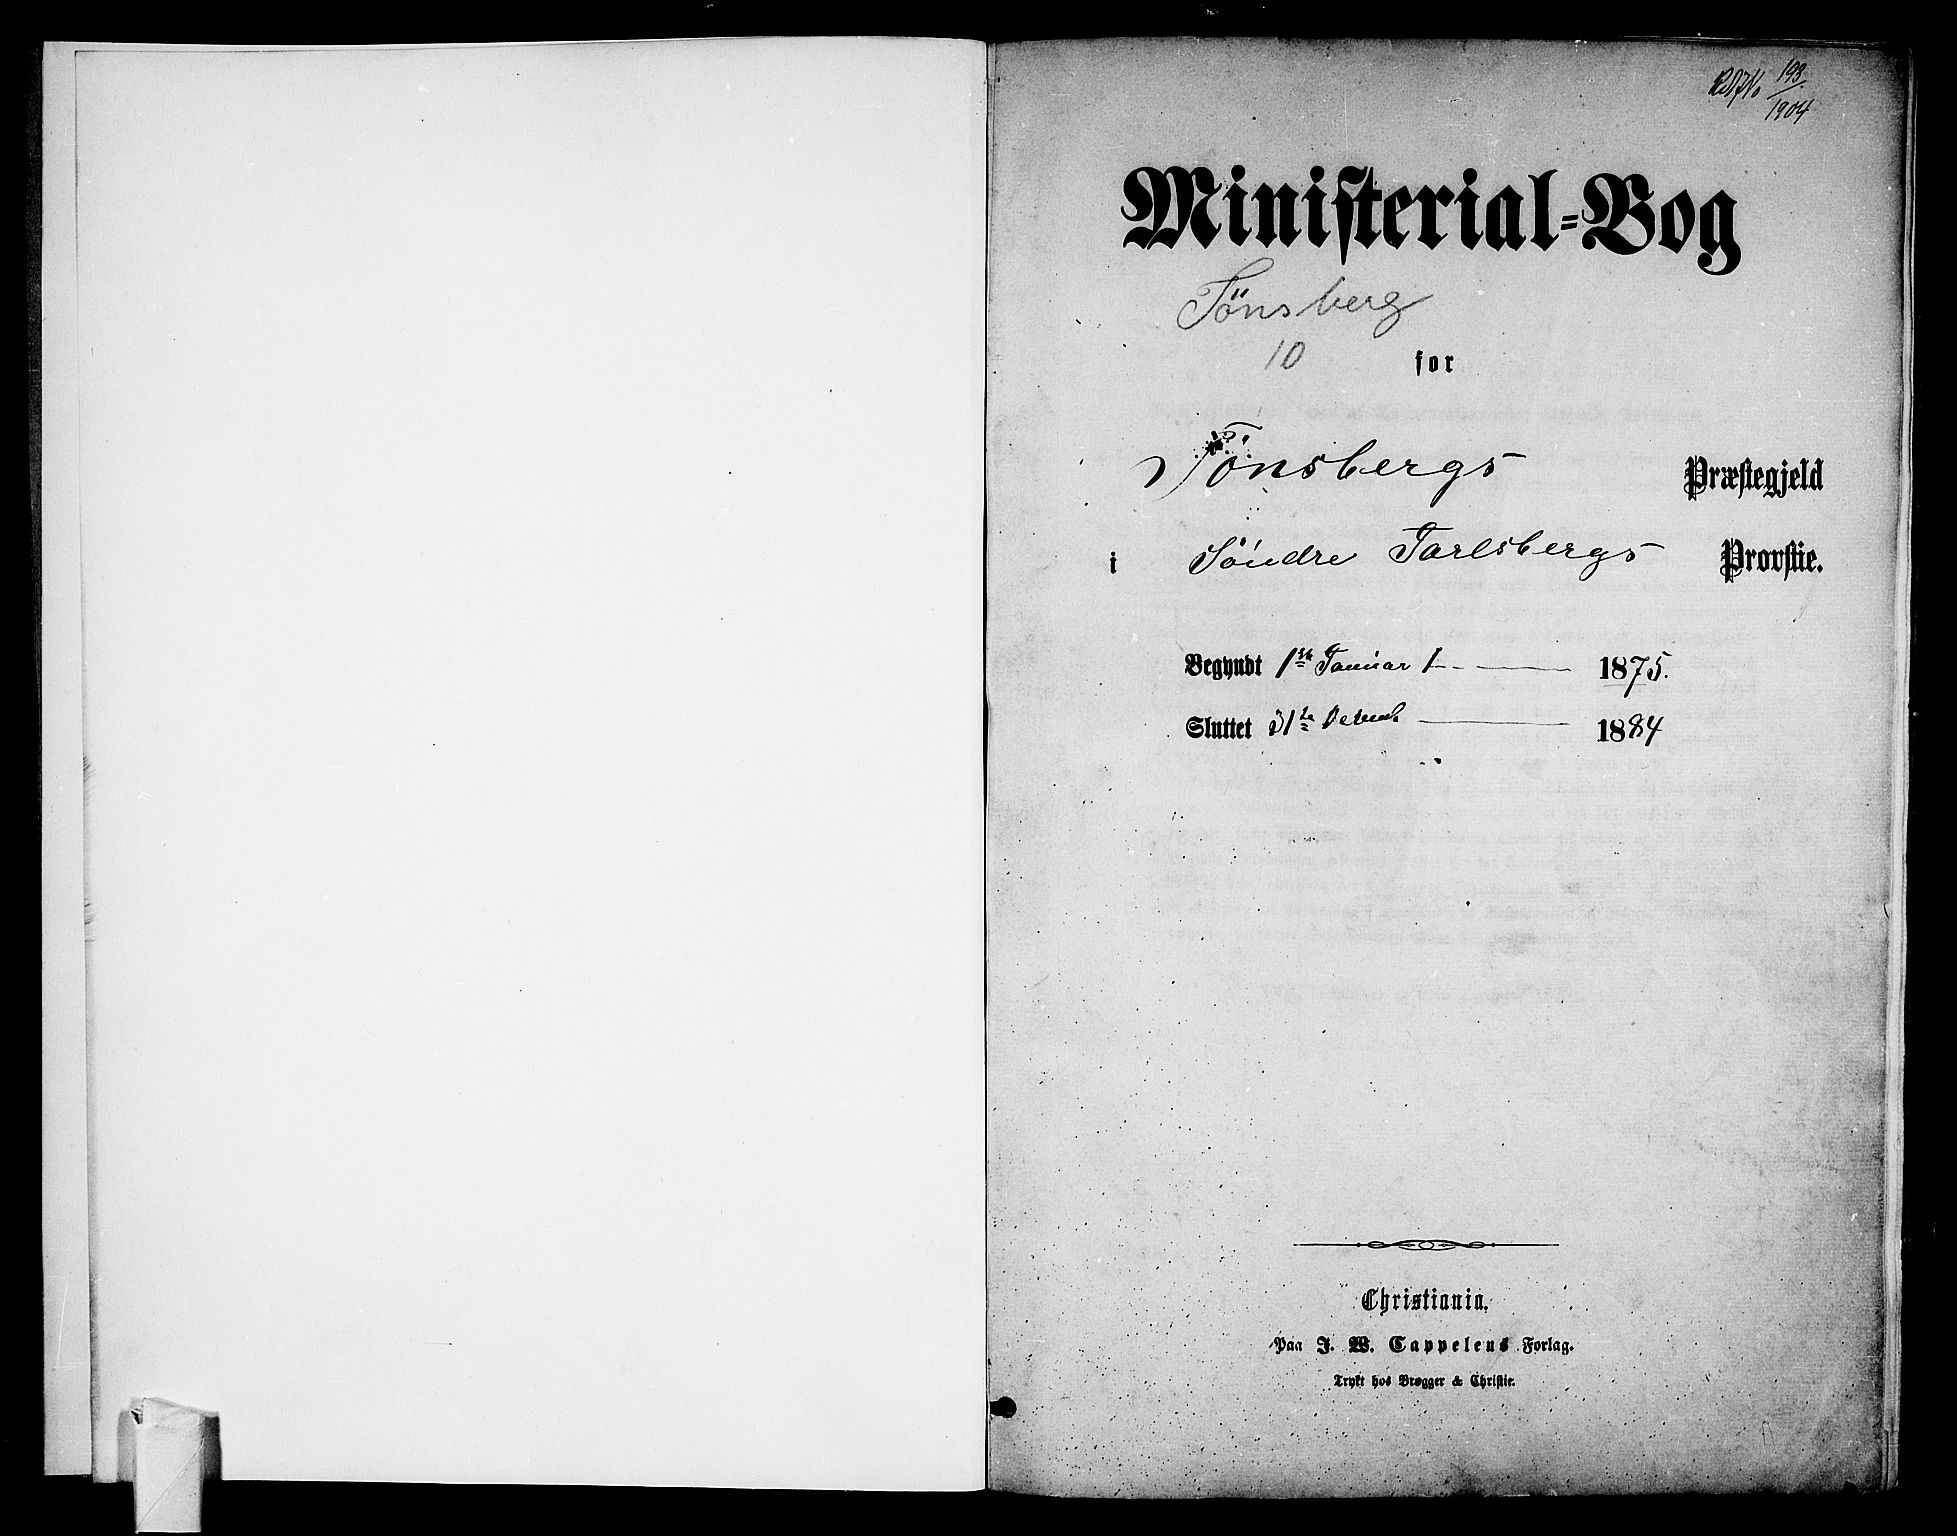 193
1904
Ministerial-Bog
Tönsberg
10
for
Tönsbergs Præstegjeld
i Söndre Jarlsbergs Provstie.
Begyndt 1ste Januar 1875.
Sluttet 31te Decemb 1884
Christiania.
Paa J. W. Cappelens Forlag.
Trykt hos Brøgger & Christie.